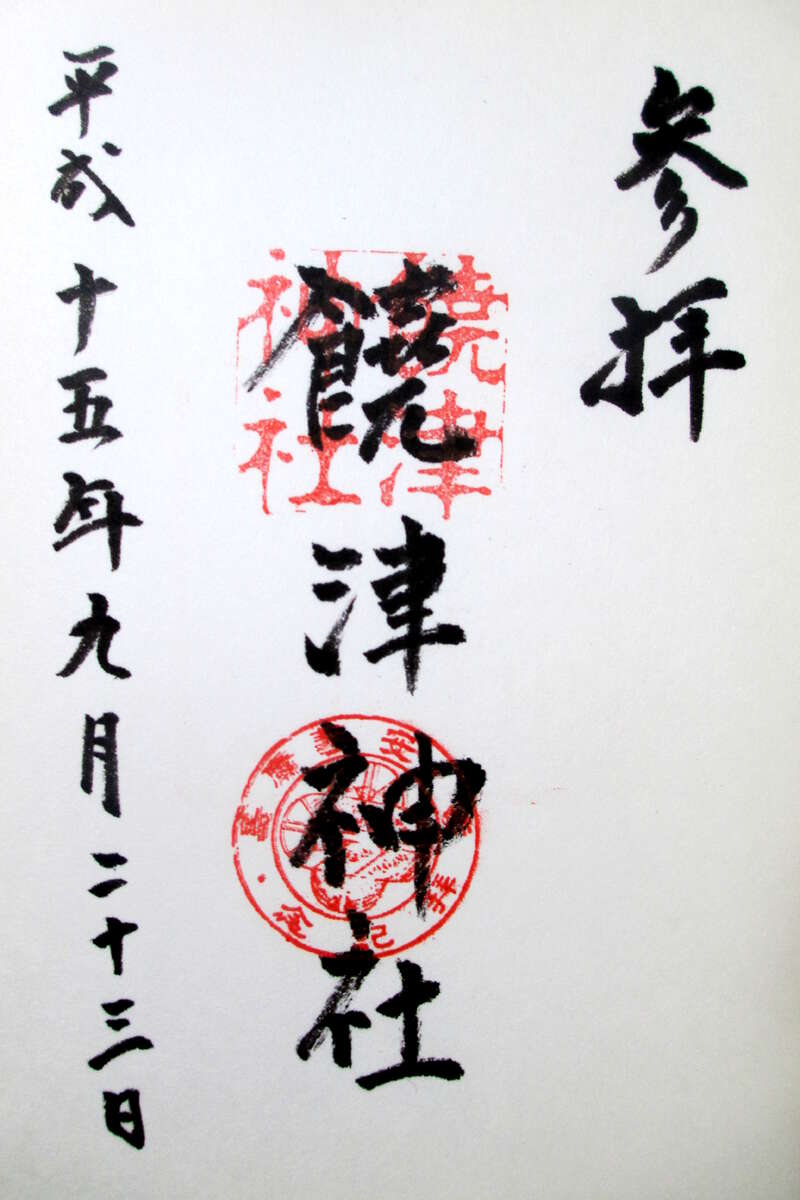 参拝
饒津神社
饒津
神社
平成十五年九月二十三日